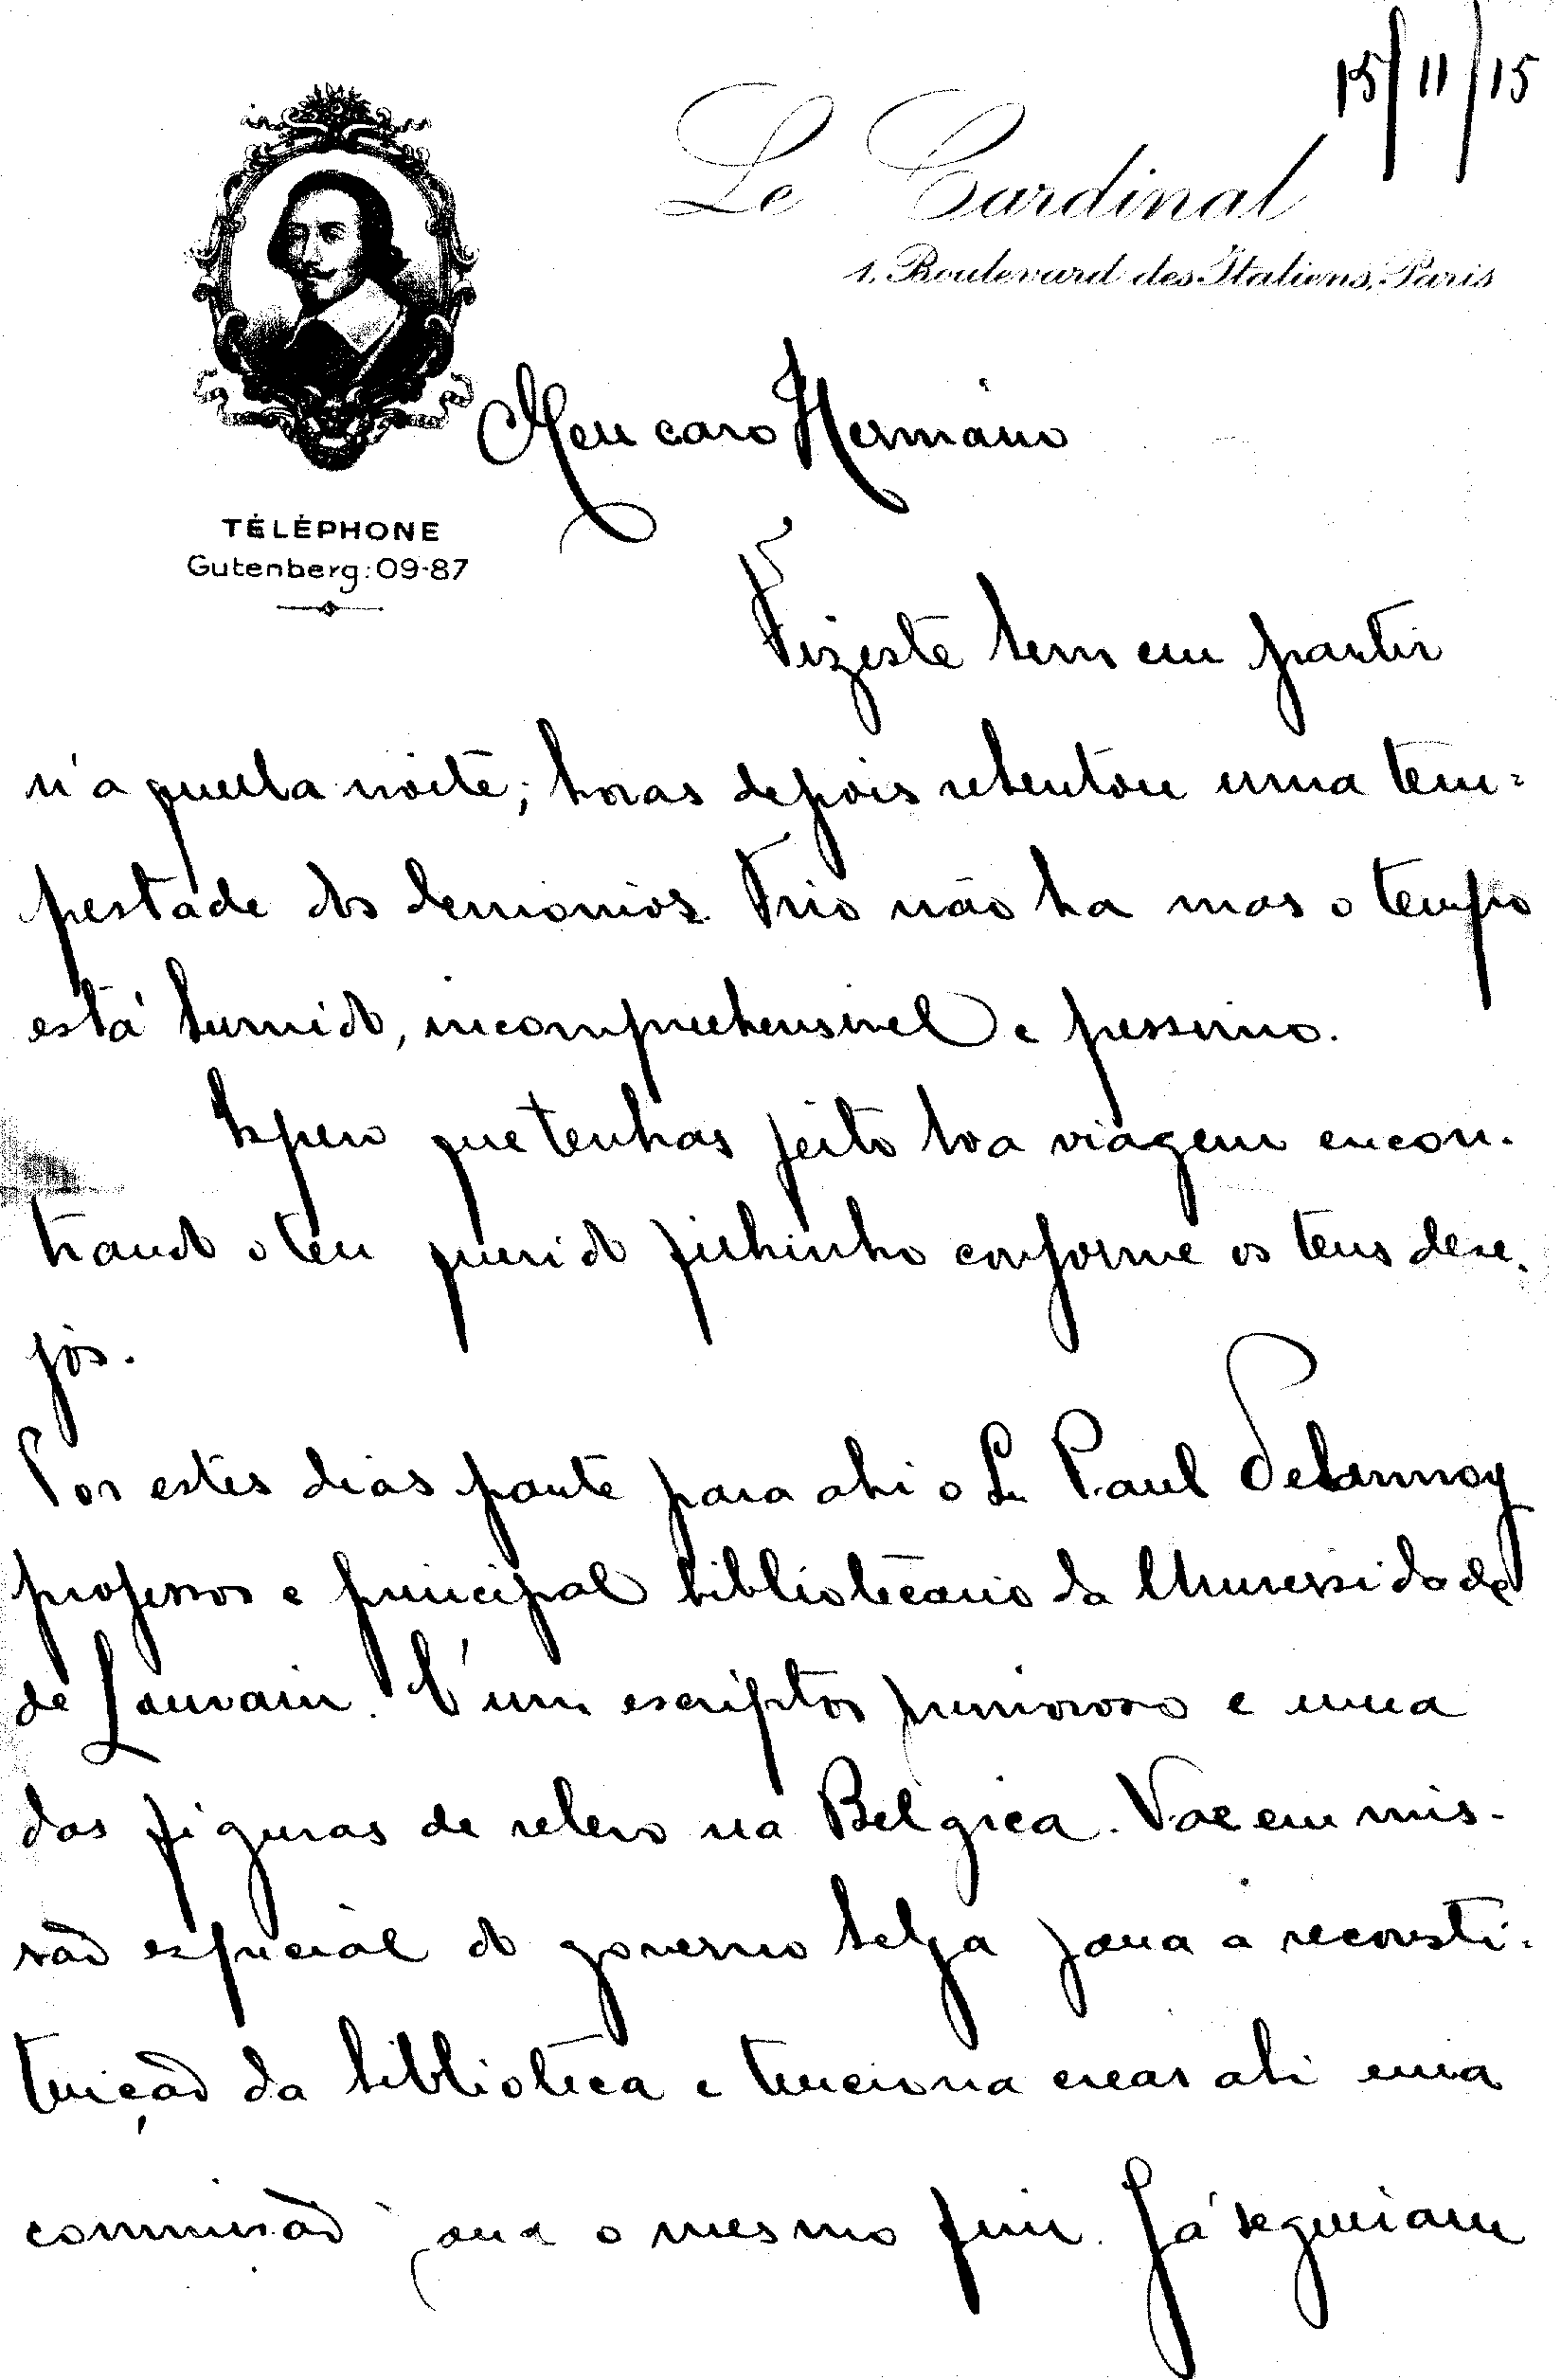 15/11/15
Le Cardinal
1, Boulevard des Italiens, Paris
Meu caro Herminio
TÉLÉPHONE
Gutenberg: 09-87
Fizeste bem em partir
n'aquella noite; horas depois rebentou uma tem-
pestade dos demonios. Frio não ha mas o tempo
está humido, incomprehensivel e pessimo.
Espero que tenhas feito boa viagem encon-
trando o teu querido filhinho conforme os teus dese-
jos.
Por estes dias parte para ahi o Sr Paul Delannoy
professor e principal bibliotecario da Universidade
de Louvain. É um escriptor primoroso e uma
das figuras de relevo na Belgica. Vae em mis-
são especial do governo belga para a reconsti-
tuição da biblioteca e tenciona crear ahi uma
commissão para o mesmo fim. Já seguiram